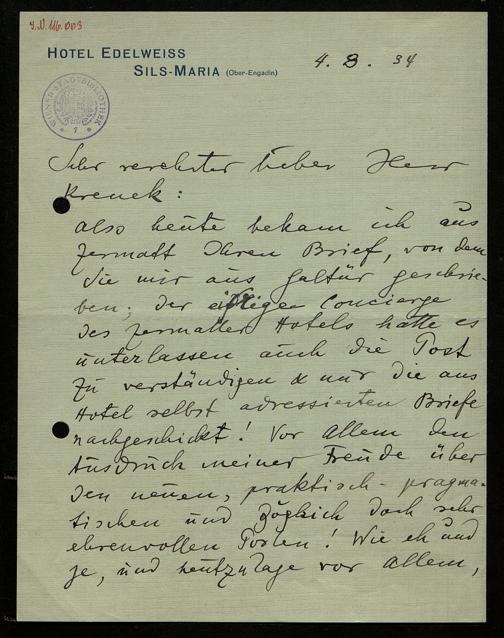 J.N. 116.003
HOTEL EDELWEISS
SILS-MARIA (Ober-Engadin)
4. 8. 34
WIENER STADTBIBLIOTHEK
Sehr verehrter lieber Herr
Krenek:
also heute bekam ich aus
Zermatt Ihren Brief, von dem
Sie mir aus Galtür geschrie-
ben; der eifrige Concierge
des Zermatter Hotels hatte es
unterlassen auch die Post
zu verständigen & nur die ans
Hotel selbst adressierten Briefe
nachgeschickt! Vor Allem den
Ausdruck meiner Freude über
den neuen, praktisch-pragma-
tischen und doch sehr
ehrenvollen Posten! Wie eh und
je, und heutzutage vor Allem,